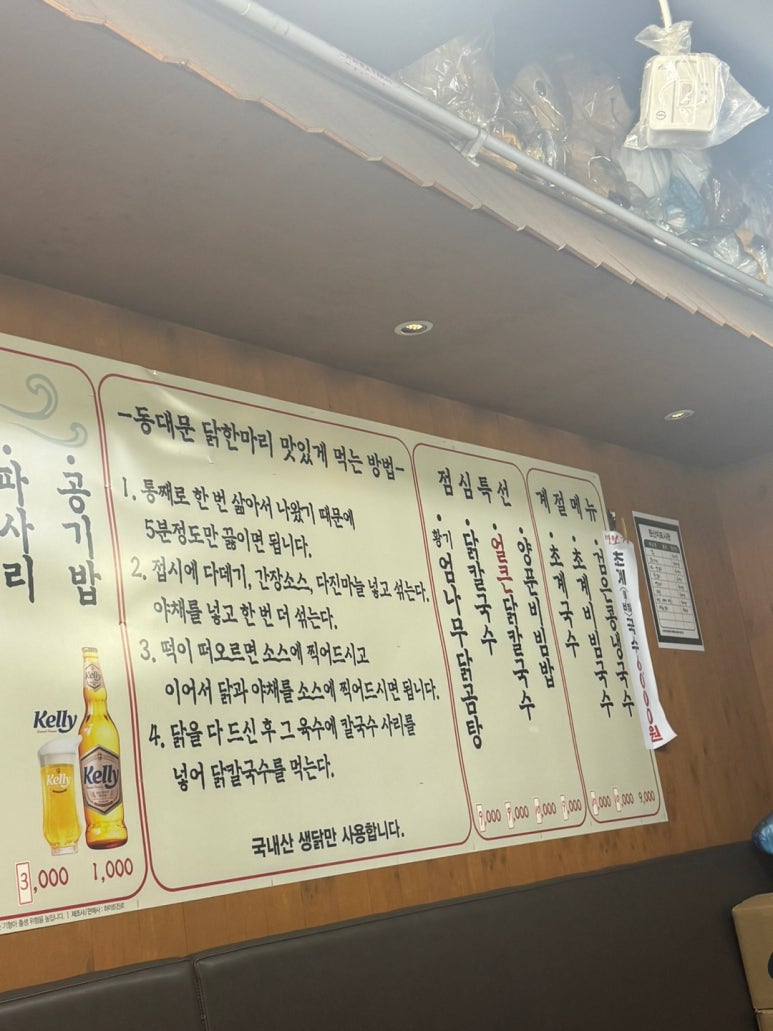 파사리
3,000
공기밥
1,000
Kelly
Kelly
Kelly
-동대문 닭한마리 맛있게 먹는 방법-
1. 통째로 한 번 삶아서 나왔기 때문에
5분정도만 끓이면 됩니다.
2. 접시에 다데기, 간장소스, 다진마늘 넣고 섞는다.
야채를 넣고 한 번 더 섞는다.
3. 떡이 떠오르면 소스에 찍어드시고
이어서 닭과 야채를 소스에 찍어드시면 됩니다.
4. 닭을 다 드신 후 그 육수에 칼국수 사리를
넣어 닭칼국수를 먹는다.
국내산 생닭만 사용합니다.
점심특선
·황기 엄나무닭곰탕
·닭칼국수
·얼큰닭칼국수
·양푼비빔밥
9,000
9,000
9,000
계절메뉴
·초계국수
·초계비빔국수
·검은콩냉국수
9,000
원산지표시판
제조사/판매사 : 하이트진로